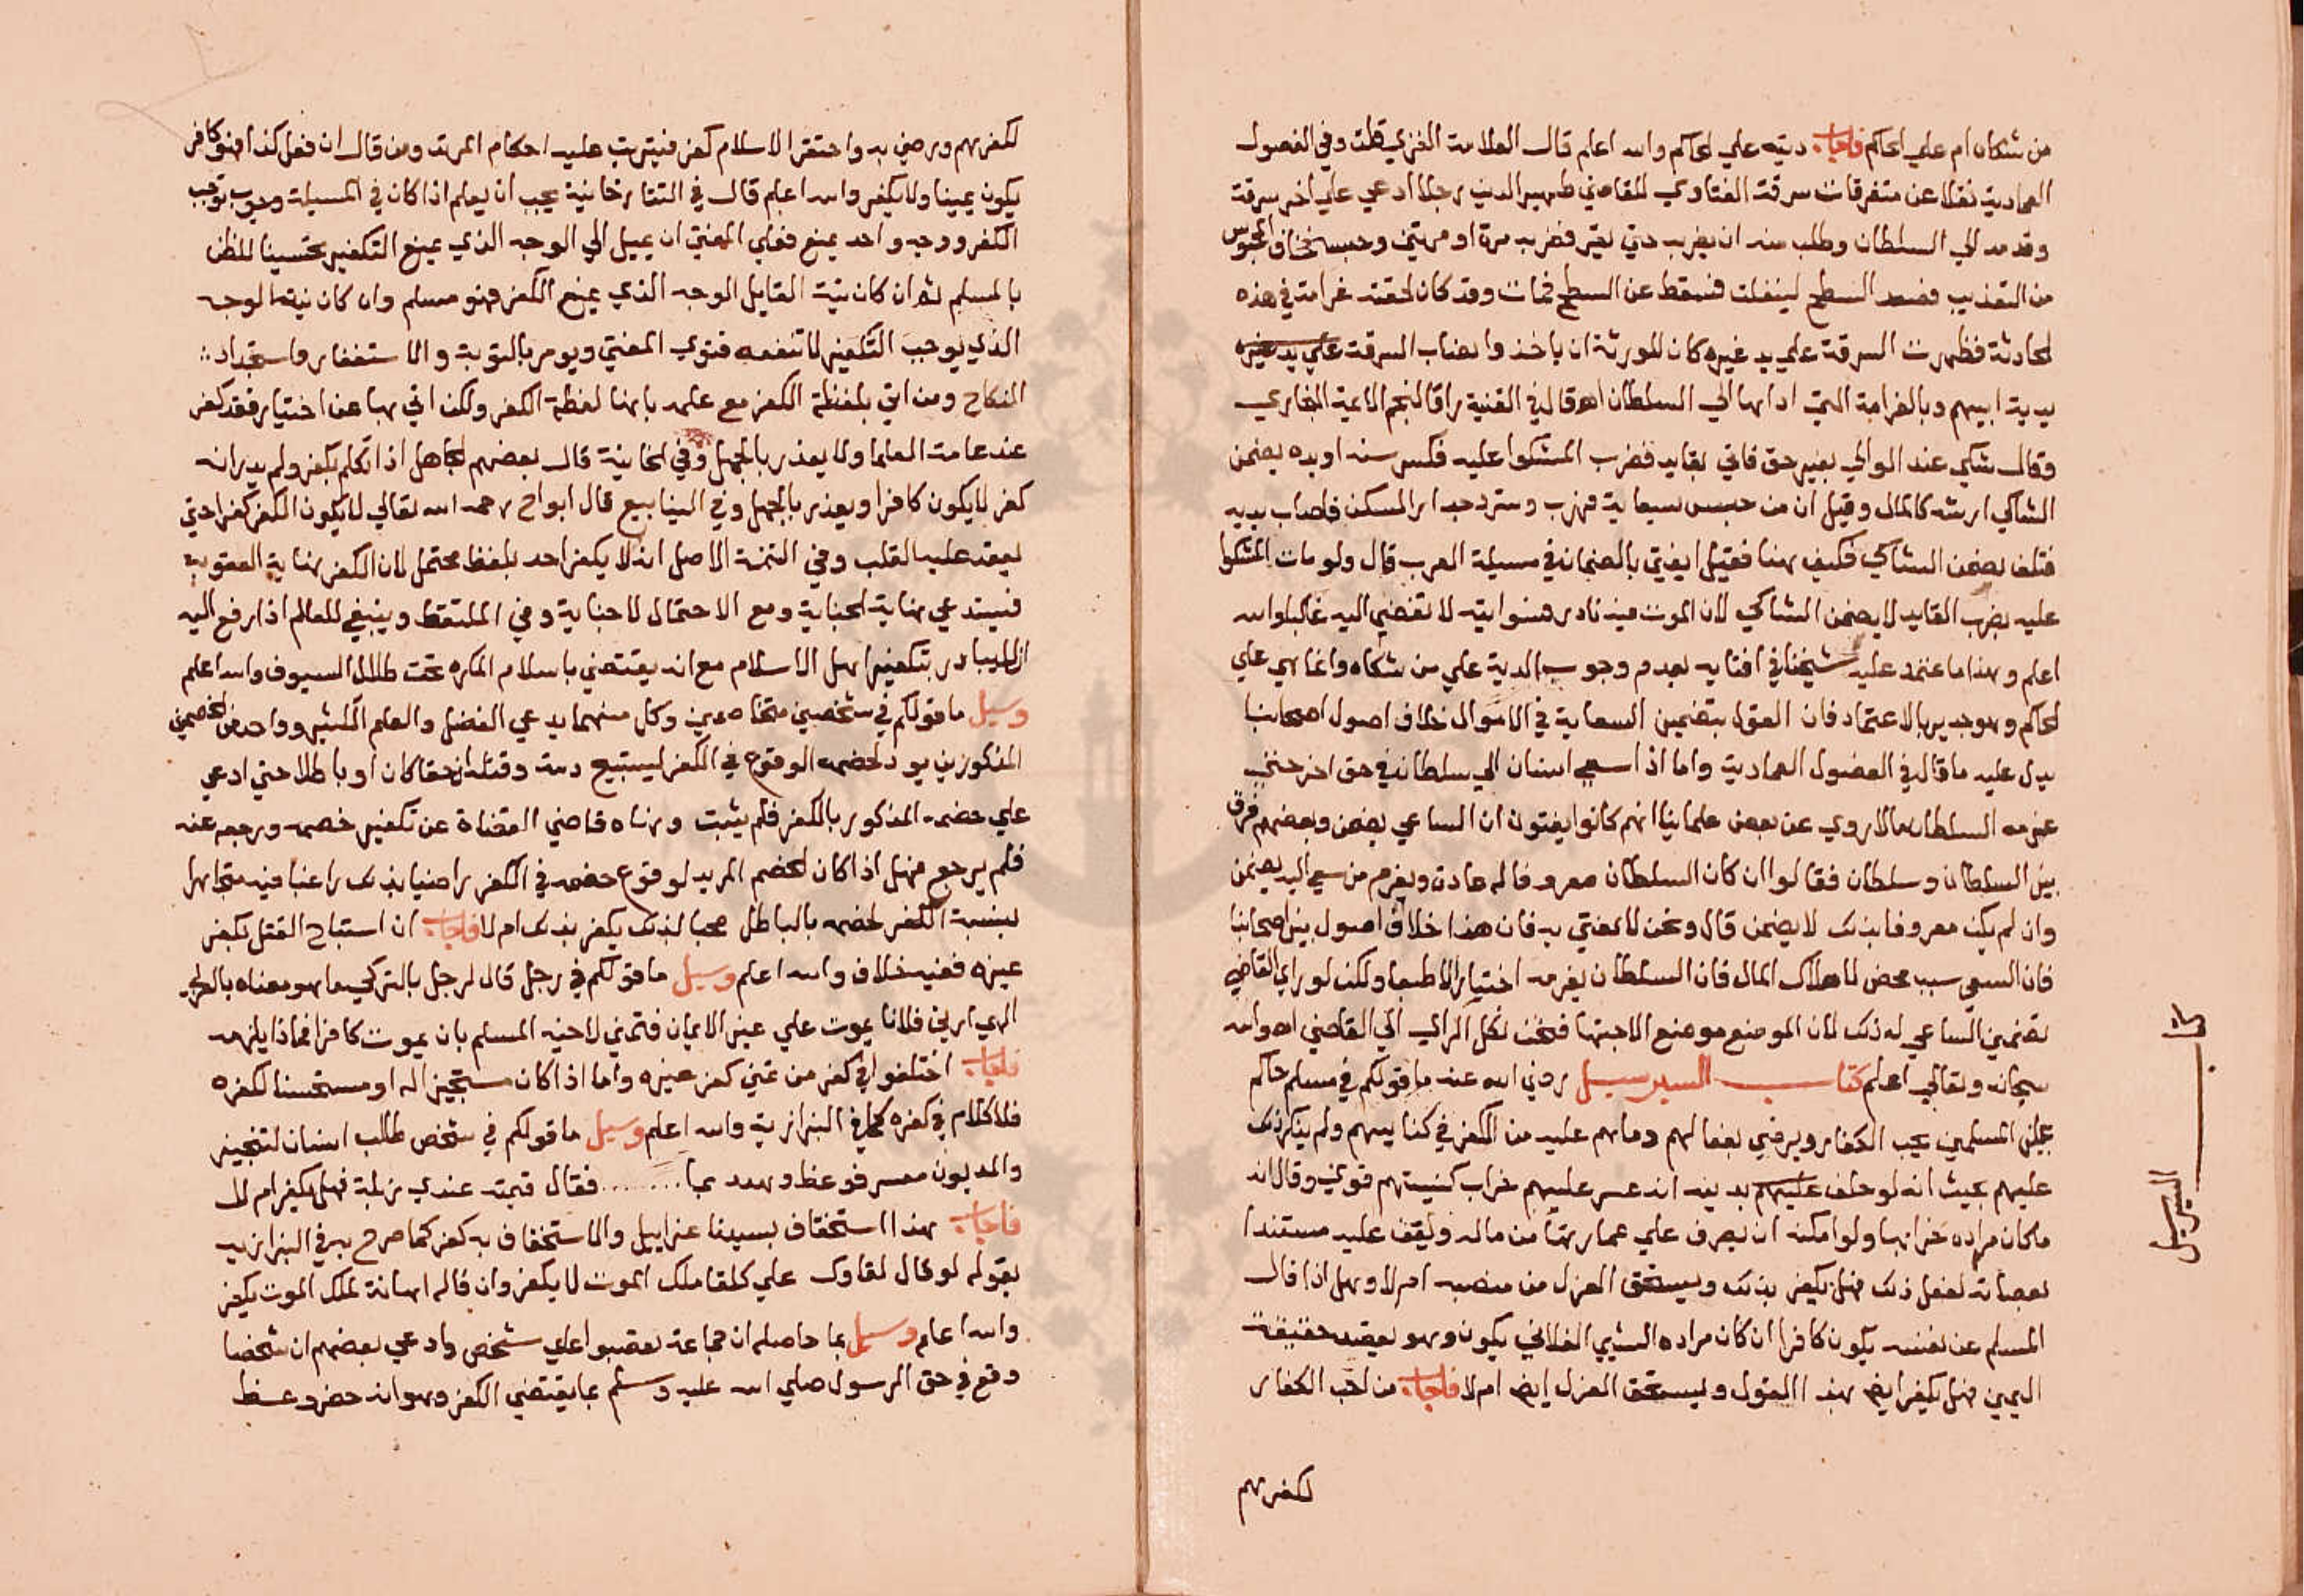 من شكاه ام علي الحاكم فاجاب ديته علي الحاكم والله اعلم قال العلامة الغزي قلت وفي الفصول
العمادية نقلا عن متفرقات سرقة الفتاوي للقاضي ظهير الدين رجلا ادعي علي اخر سرقة
وقدمه الي السلطان وطلب منه ان يضربه حتي يقر فضربه مرة او مرتين وحبسه فخاف المحبوس
من التعذيب فصعد السطح لينفلت فسقط عن السطح فمات وقد كان لحقته غرامة في هذه
الحادثة فظهرت السرقة علي يد غيره كان للورثة ان ياخذوا بصاحب السرقة علي يد غيره
بدية ابيهم وبالغرامة التي اداها الي السلطان اه وقال في القنية راقا لنجم الائمة البخاري
وقال شكي عند الوالي بغير حق فاتي بقايد فضرب المشكوا عليه فكسر سنه او يده يضمن
الشاكي ارشه كالمال وقيل ان من حبس بسعاية فهرب وتسور جدار المسكن فاصاب بدنه
فتلف يضمن الشاكي فكيف هنا فقيل ايفتي بالضمان في مسيلة الهرب قال ولو مات المشكوا
عليه بضرب القايد لا يضمن الشاكي لان الموت فيه نادر فسعايته لا تفضي اليه غالبا والله
اعلم وهذا ما اعتمد عليه شيخنا في افتايه بعدم وجوب الدية علي من شكاه وانما هي علي
الحاكم وهو جدير بالاعتماد فان القول بتضمين السعاية في الاموال خلاف اصول اصحابنا
يدل عليه ما قال في الفصول العمادية واما اذا سعي انسان الي سلطان في حق اخر حتي
غرمه السلطان مالا روي عن بعض علمائنا انهم كانوا يفتون ان الساعي يضمن وبعضهم فرق
بين السلطان وسلطان فقالوا ان كان السلطان معروفا له عادة ويغرم من سعي اليه يضمن
وان لم يكن معروفا بذلك لا يضمن قال ونحن لا نفتي به فان هذا خلاف اصول اصحابنا
فان السعي سبب محض لاهلاك المال فان السلطان يغرمه اختيارا لا طبعا ولكن لو راي القاضي
تضمين الساعي له ذلك لان الموضع موضع الاجتهاد فنحن نكل الراي الي القاضي اه والله
سبحانه وتعالي اعلم كتاب السير سيل رضي الله عنه ما قولكم في مسلم حاكم
علي المسلمين يحب الكفار ويرضي بفعالهم وما هم عليه من الكفر في كنايسهم ولم ينكر ذلك
عليهم بحيث انه لو حلف عليهم بدينه انه عسر عليهم خراب كنيستهم قوي وقال انه
ما كان مراده خرابها ولو امكنه ان يصرف علي عمارتها من ماله ويقف عليه مستندا
بعصاته لفعل ذلك فهل يكفر بذلك ويستحق العزل من منصبه ام لا وهل اذا قال
المسلم عن نفسه يكون كافرا ان كان مراده الشي الفلاني يكون وهو بقصد حقيقة
اليمين فهل يكفر ايضا بهذا القول ويستحق العزل ايضا ام لا فاجاب من احب الكفار
لكفرهم
كتاب السير سيل
لكفرهم ورضي به واحتقر الاسلام كفر فيترتب عليه احكام المرتد ومن قال ان فعل كذا فهو كافر
يكون يمينا ولا يكفر والله اعلم قال في التتارخانية يجب ان يعلم اذا كان في المسيلة وجوب توجب
الكفر ووجه واحد يمنع فعلي المفتي ان يميل الي الوجه الذي يمنع التكفير تحسينا للظن
بالمسلم ثم ان كان نية القايل الوجه الذي يمنع الكفر فهو مسلم وان كان نيته الوجه
الذي يوجب التكفير لا تنفعه فتوي المفتي ويومر بالتوبة والاستغفار واستجداد
النكاح ومن اتي بلفظة الكفر مع علمه بانها لفظة الكفر ولكن اتي بها عن اختيار فقد كفر
عند عامة العلما ولا يعذر بالجهل وفي الخانية قال بعضهم الجاهل اذا تكلم بكفر ولم يدر انه
كفر لا يكون كافرا ويعذر بالجهل وفي الينابيع قال ابو ح رحمه الله تعالي لا يكون الكفر كفرا حتي
يعقد عليه القلب وفي التتمة الاصل انه لا يكفر احد بلفظ محتمل لان الكفر نهاية العقوبة
فيستدعي نهاية الجناية ومع الاحتمال لا جناية وفي الملتقط وينبغي للعالم اذا رفع اليه
ان لا يبادر بتكفير اهل الاسلام مع انه يقتضي باسلام المكره تحت ظلال السيوف والله اعلم
وسيل ما قولكم في شخصين متخاصمين وكل منهما يدعي الفضل والعلم الكثير وواحد من الخصمين
المذكورين يود لخصمه الوقوع في الكفر ليستبيح دمه وقتله ان حقا كان او باطلا حتي ادعي
علي خصمه المذكور بالكفر فلم يثبت ونهاه قاضي القضاة عن تكفير خصمه ورجعه عنه
فلم يرجع فهل اذا كان الخصم المريد لوقوع خصمه في الكفر راضيا بذلك راغبا فيه متجاهرا
بنسبة الكفر لخصمه بالباطل محبا لذلك يكفر بذلك ام لا فاجاب ان استباح القتل بكفر
غيره ففيه خلاف والله اعلم وسيل ما قولكم في رجل قال لرجل بالتركي ما هو معناه بالعربي
الهي ارني فلانا يموت علي غير الايمان فتمني لاخيه المسلم بان يموت كافرا فماذا يلزمه
فاجاب اختلفوا في كفر من تمني كفر غيره واما اذا كان مستجيزا له او مستحسنا لكفره
فلا كلام في كفره كما في البزازية والله اعلم وسيل ما قولكم في شخص طالب انسان لتنجيز
والمديون معسر فوعظ وهدد بما ....... فقال قيمته عندي زبلة فهل يكفر ام لا
فاجاب هذا استخفاف بسيدنا عزاييل والاستخفاف به كفر كما صرح به في البزازية
بقوله لو قال لقاوك علي كلقا ملك الموت لا يكفر وان قاله اهانة لملك الموت يكفر
والله اعلم وسيل بما حاصله ان جماعة تعصبوا علي شخص وادعي بعضهم ان شخصا
وقع في حق الرسول صلي الله عليه وسلم بما يقتضي الكفر وهو انه حضر وعظ